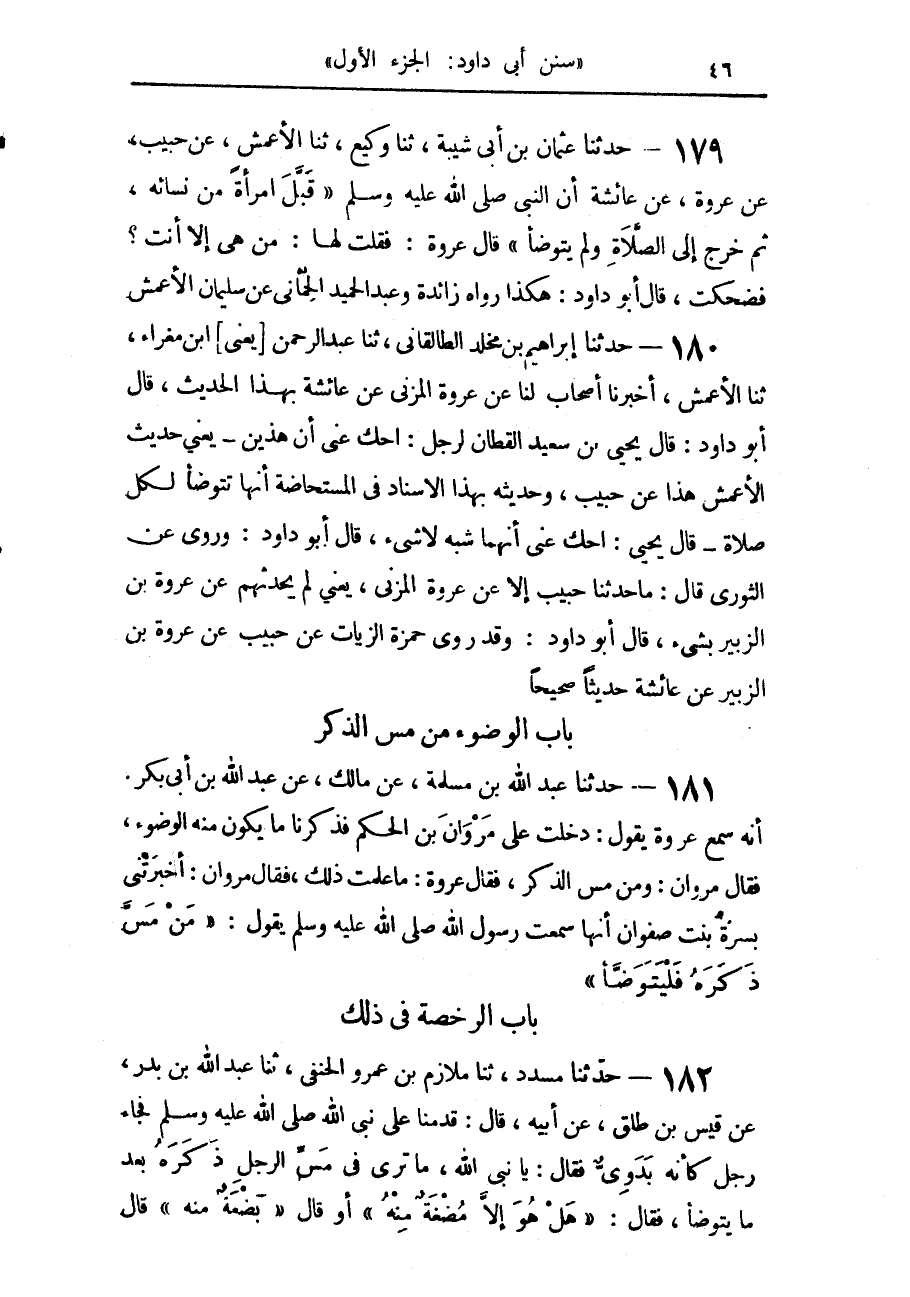 ٤٦ «سنن أبى داود: الجزء الأول»
١٧٩ — حدثنا عثمان بن أبى شيبة ، ثنا وكيع ، ثنا الأعمش ، عن حبيب،
عن عروة ، عن عائشة أن النبى صلى الله عليه وسلم « قَبَّلَ امرأةً من نسائه ،
ثم خرج إلى الصَّلَاةِ ولم يتوضأ » قال عروة : فقلت لها : من هى إلا أنت ؟
فضحكت ، قال أبو داود : هكذا رواه زائدة وعبدالحميد الحِمَّانى عن سليمان الأعمش
١٨٠ — حدثنا إبراهيم بن مخلد الطالقانى ، ثنا عبدالرحمن [يعنى] ابن مغراء ،
ثنا الأعمش ، أخبرنا أصحاب لنا عن عروة المزنى عن عائشة بهذا الحديث ، قال
أبو داود : قال يحيى بن سعيد القطان لرجل : احك عنى أن هذين ــ يعني حديث
الأعمش هذا عن حبيب ، وحديثه بهذا الاسناد فى المستحاضة أنها تتوضأ لكل
صلاة ــ قال يحيى : احك عنى أنهما شبه لاشىء ، قال أبو داود : وروى عن
الثورى قال : ماحدثنا حبيب إلا عن عروة المزنى ، يعني لم يحدثهم عن عروة بن
الزبير بشىء ، قال أبو داود : وقد روى حمزة الزيات عن حبيب عن عروة بن
الزبير عن عائشة حديثاً صحيحاً
باب الوضوء من مس الذكر
١٨١ — حدثنا عبد الله بن مسلمة ، عن مالك ، عن عبد الله بن أبى بكر .
أنه سمع عروة يقول : دخلت على مَرْوَانَ بن الحكم فذكرنا ما يكون منه الوضوء ،
فقال مروان : ومن مس الذكر ، فقال عروة : ماعلمت ذلك ، فقال مروان : أخبرَتْنى
بسرَةُ بنت صفوان أنها سمعت رسول الله صلى الله عليه وسلم يقول : « مَنْ مَسَّ
ذَكَرَهُ فَلْيَتَوَضَّأ »
باب الرخصة فى ذلك
١٨٢ — حدّثنا مسدد ، ثنا ملازم بن عمرو الحنفى ، ثنا عبد الله بن بدر ،
عن قيس بن طلق ، عن أبيه ، قال : قدمنا على نبي الله صلى الله عليه وسلم فجاء
رجل كأنه بَدَوِىٌّ فقال : يا نبى الله ، ما ترى فى مَسِّ الرجلِ ذَكَرَهُ بعد
ما يتوضأ ، فقال : « هَلْ هُوَ إلاَّ مُضْغَةٌ مِنْهُ » أو قال « بَضْعَةٌ منه » قال